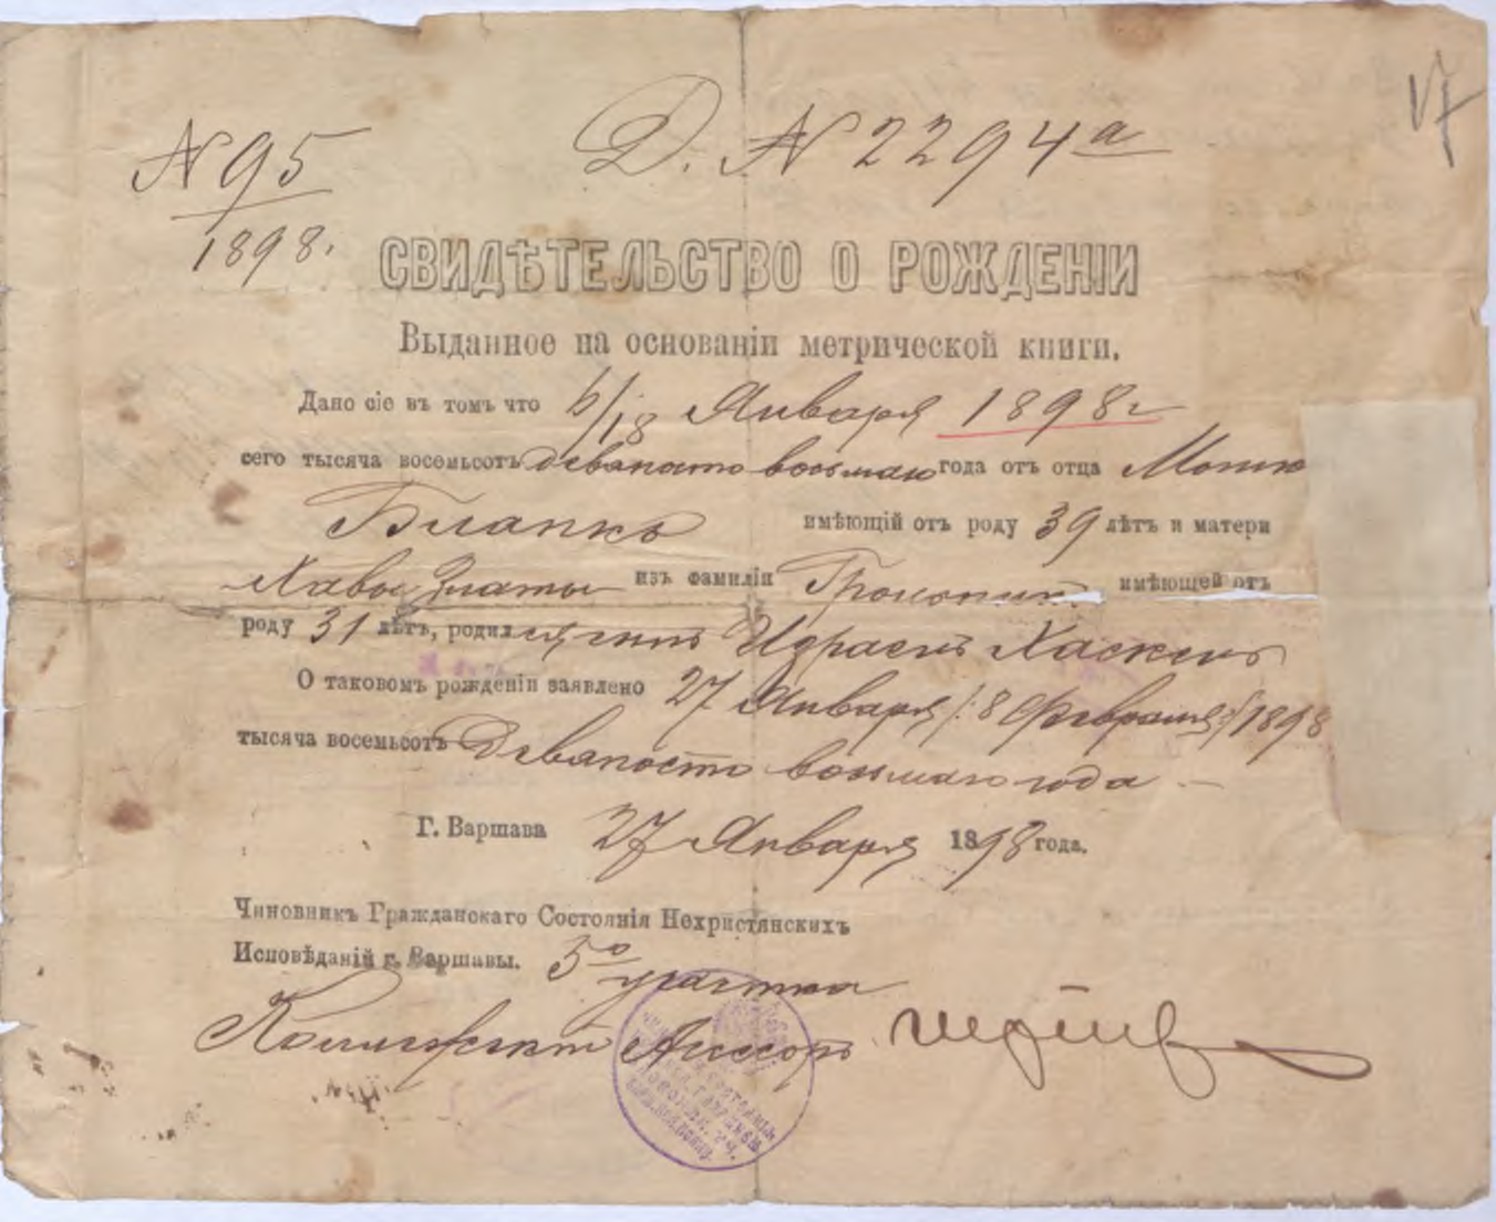 17
№ 95
1898.
Д. № 2294а
СВИДѢТЕЛЬСТВО О РОЖДЕНІИ
Выданное на основаніи метрической книги.
Дано сіе въ томъ что 6/18 Января 1898 г
сего тысяча восемьсотъ девяносто восьмаго года отъ отца
Бланкъ имѣющій отъ роду 39 лѣтъ и матери
Хавы Златы изъ фамиліи имѣющей отъ
роду 31 лѣтъ, родился сынъ Израель Хаскель
О таковомъ рожденіи заявлено 27 Января /: 8 Февраля :/ 1898
тысяча восемьсотъ Девяносто восьмаго года —
Г. Варшава 27 Января 1898 года.
Чиновникъ Гражданскаго Состоянія Нехристянскихъ
Исповѣданій г. Варшавы. 5го участка
Коллежскій Ассесоръ